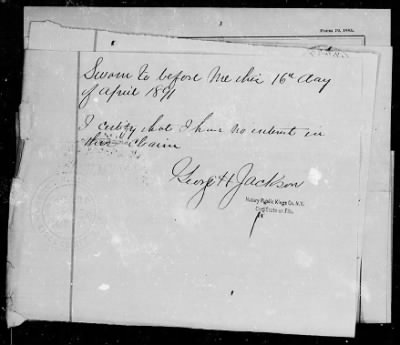 Sworn to before me this 16th day
of April 1891
I certify that I have no interest in
this claim
George H Jackson
Notary Public Kings Co. N.Y.
Certificate on File.